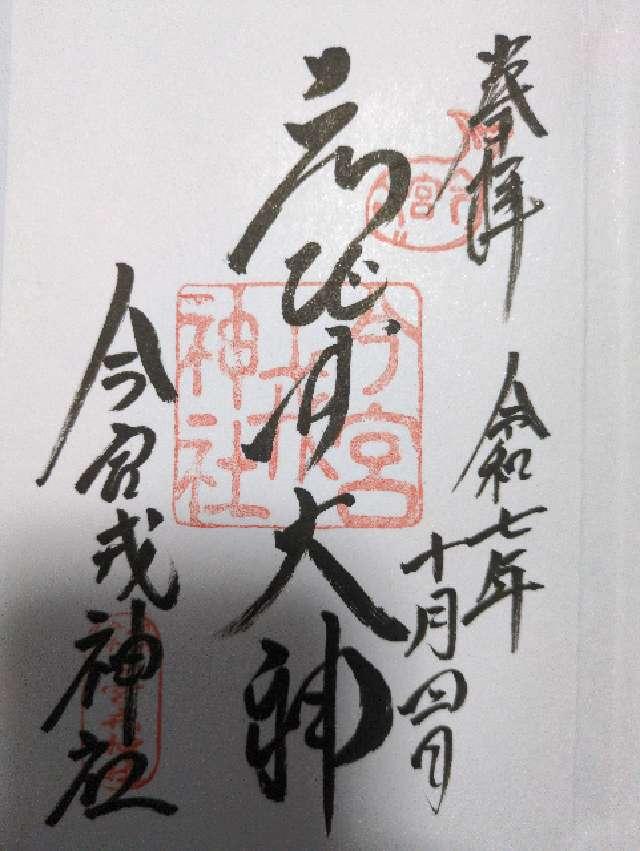 奉拝
令和七年
十月四日
ゑびす大神
今宮戎神社
今宮
戎
神社